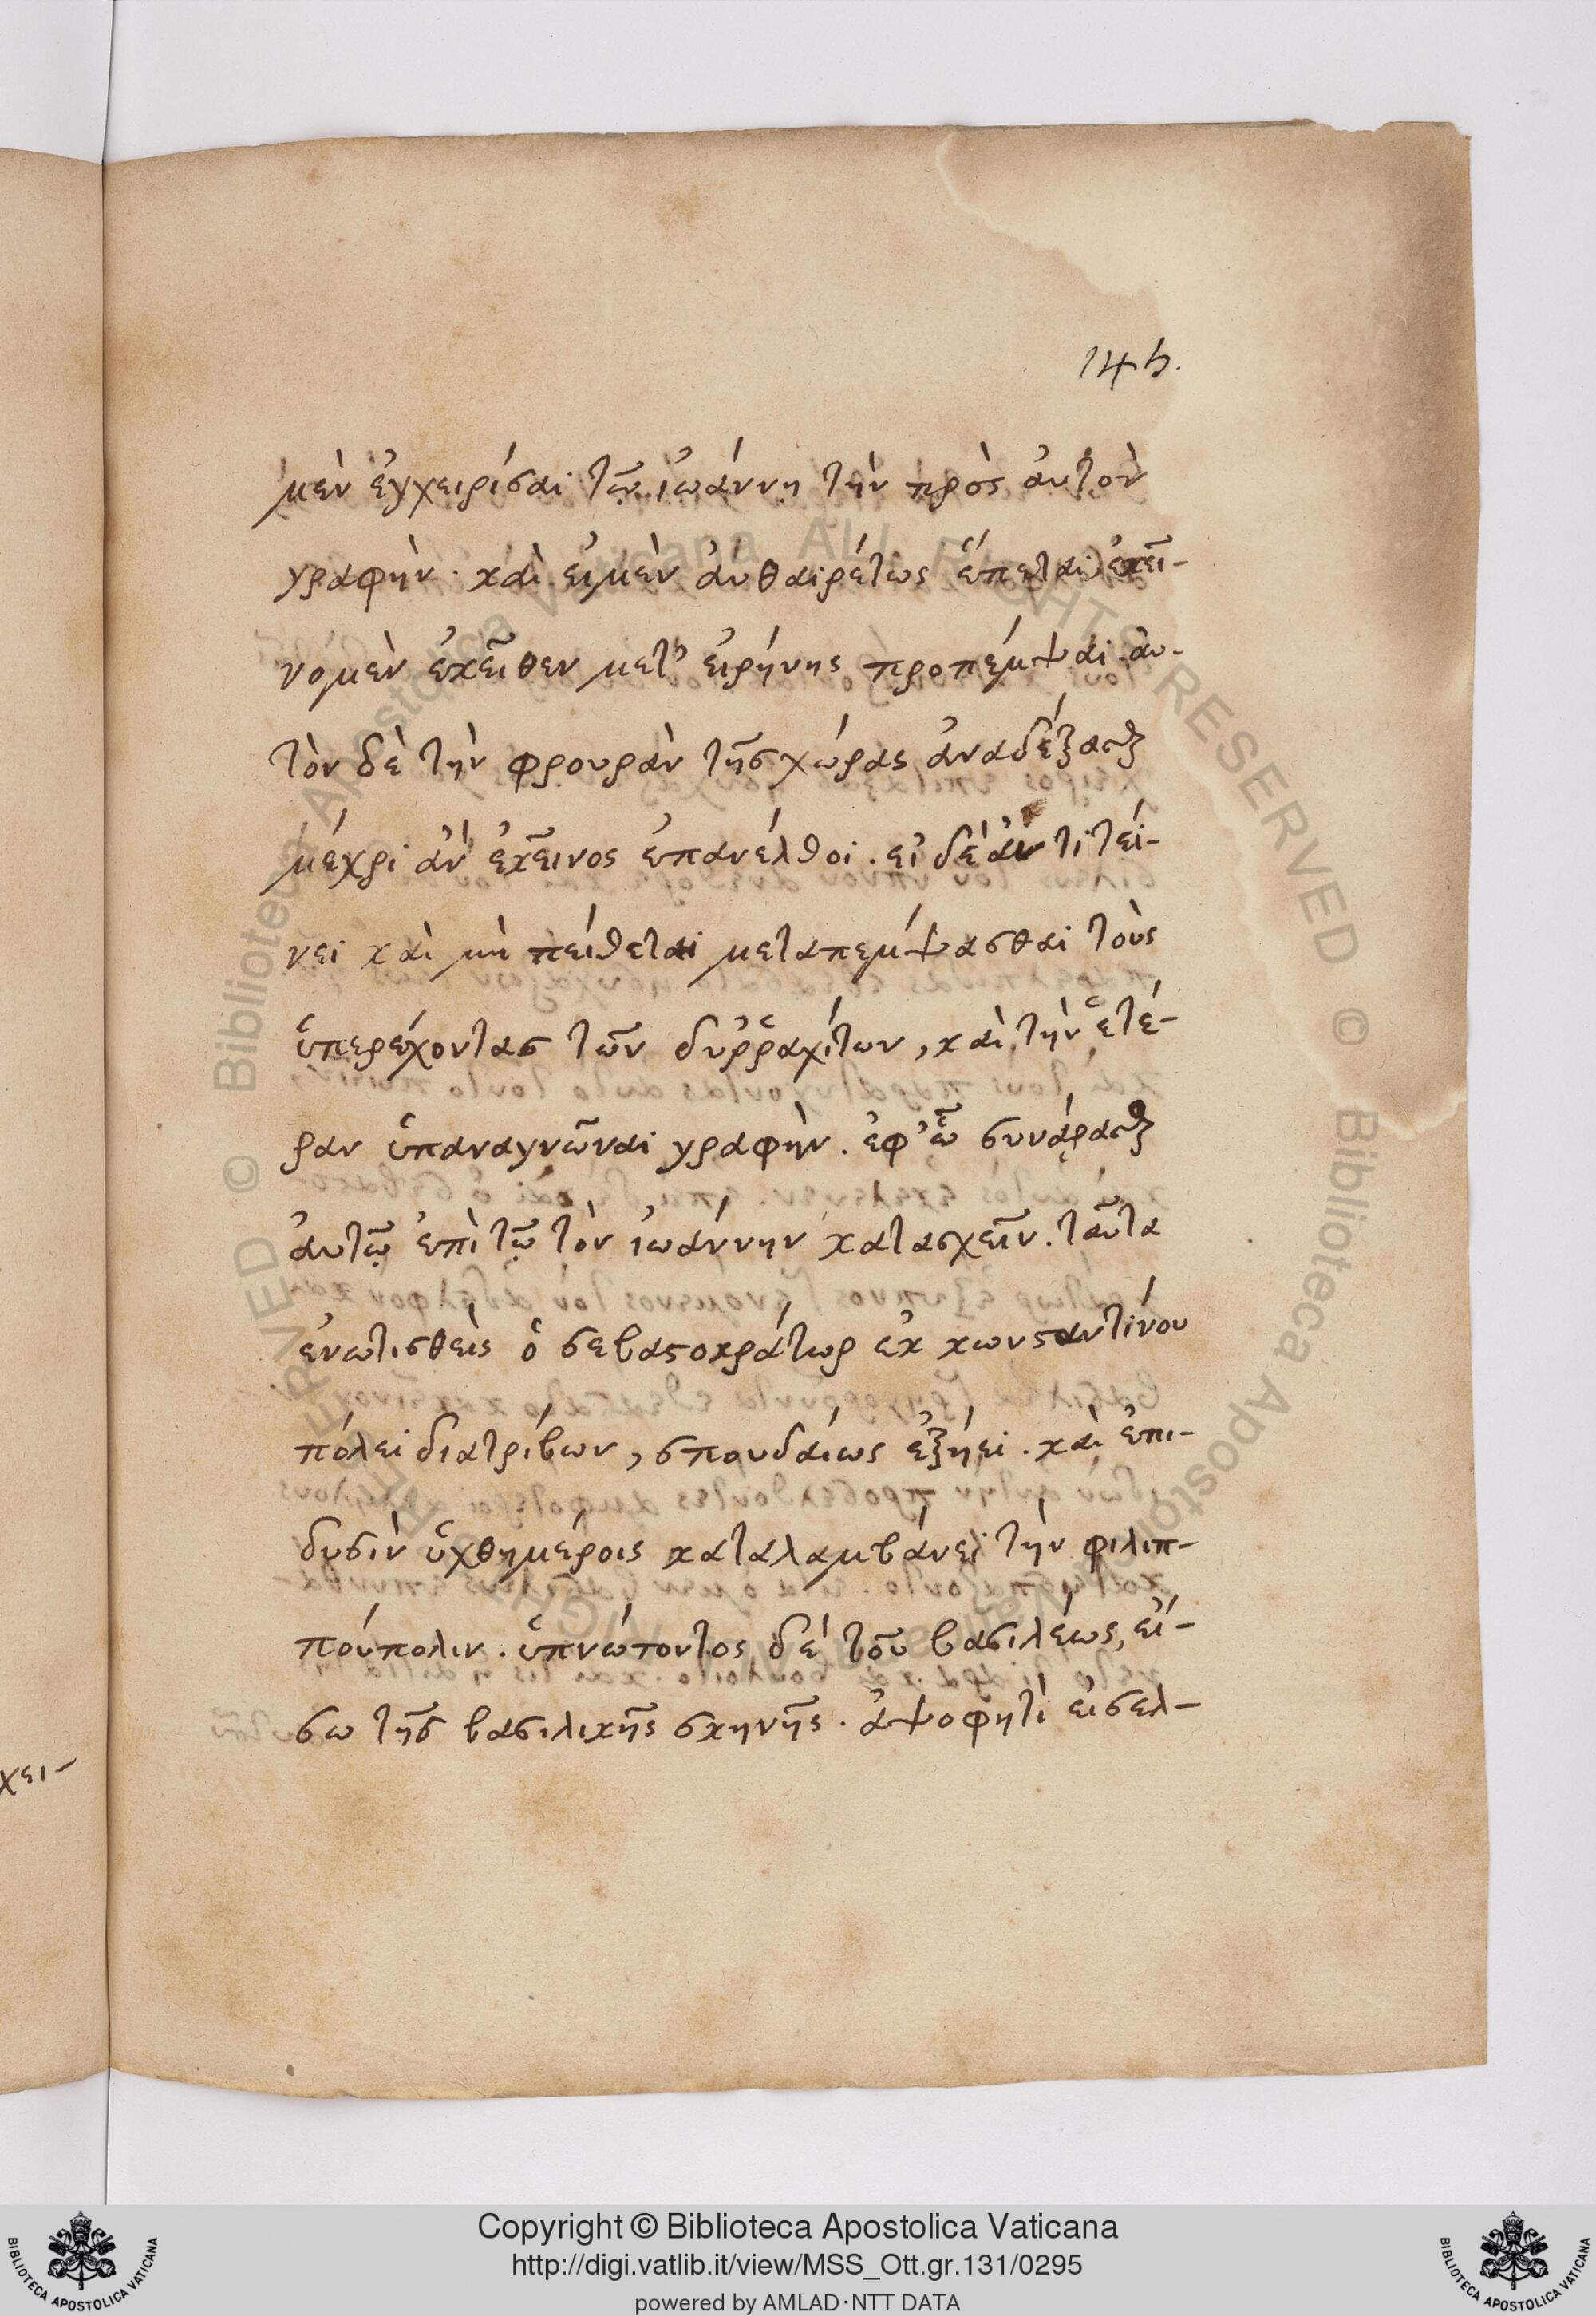 146.
μὲν ἐγχειρίσαι τῶ ἰωάννη τὴν πρὸς ἀυτὸν
γραφὴν· καὶ ει μὲν ἀυθαιρέτως ἕπεται ἐκεῖ-
νομὲν ἐκεῖθεν μετ' ἐιρήνης προπέμψαι· αυ-
τὸν δὲ τὴν φρουρὰν τῆς χώρας ἀναδέξασθαι
μέχρι ἀν ἐκεῖνος ἐπανέλθοι. εἰ δὲ ἀντιτεί-
νει καὶ μὴ πείθεται μεταπεμψασθαι τοὺς
ὑπερέχοντασ τῶν δυῤῥαχίτων, καὶ τὴν ἑτέ-
ραν ὑπαναγνῶναι γραφὴν. ἐφ' ὧ συνάρασθαι
ἀυτῶ ἐπὶ τῶ τὸν ἰωάννην κατασχεῖν. ταῦτα
ἐνωτισθεὶς ὁ σεβαστοκράτωρ ἐκ κωνσταντίνου
πόλει διατρίβων, σπουδάιως ἐξήει. καὶ ἐπι-
δυσὶν ὑχθημέροις καταλαμβάνει τὴν φιλιπ-
πούπολιν. ὑπνώτοντος δέ τοῦ βασιλέως, εἴ-
σω τῆς βασιλικῆς σκηνῆς. ἀψοφητὶ ἐισελ-
χει-
Copyright © Biblioteca Apostolica Vaticana
http://digi.vatlib.it/view/MSS_Ott.gr.131/0295
powered by AMLAD·NTT DATA